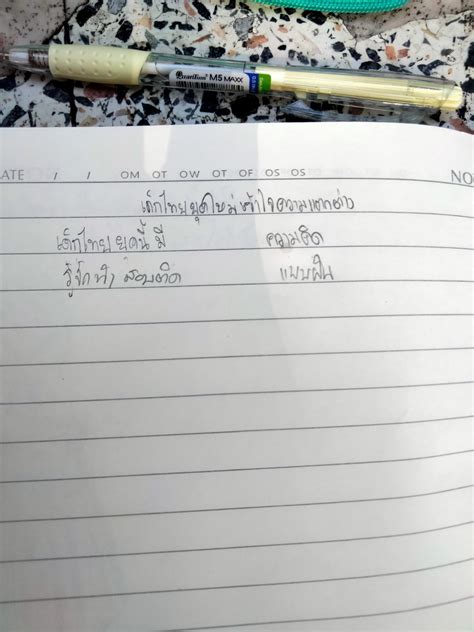 Quantum M5 MAXX
DATE / / OM OT OW OT OF OS OS NO
เด็กไทยยุคใหม่เข้าใจความแตกต่าง
เด็กไทยยุคนี้มี ความคิด
รู้จัก สอบติด